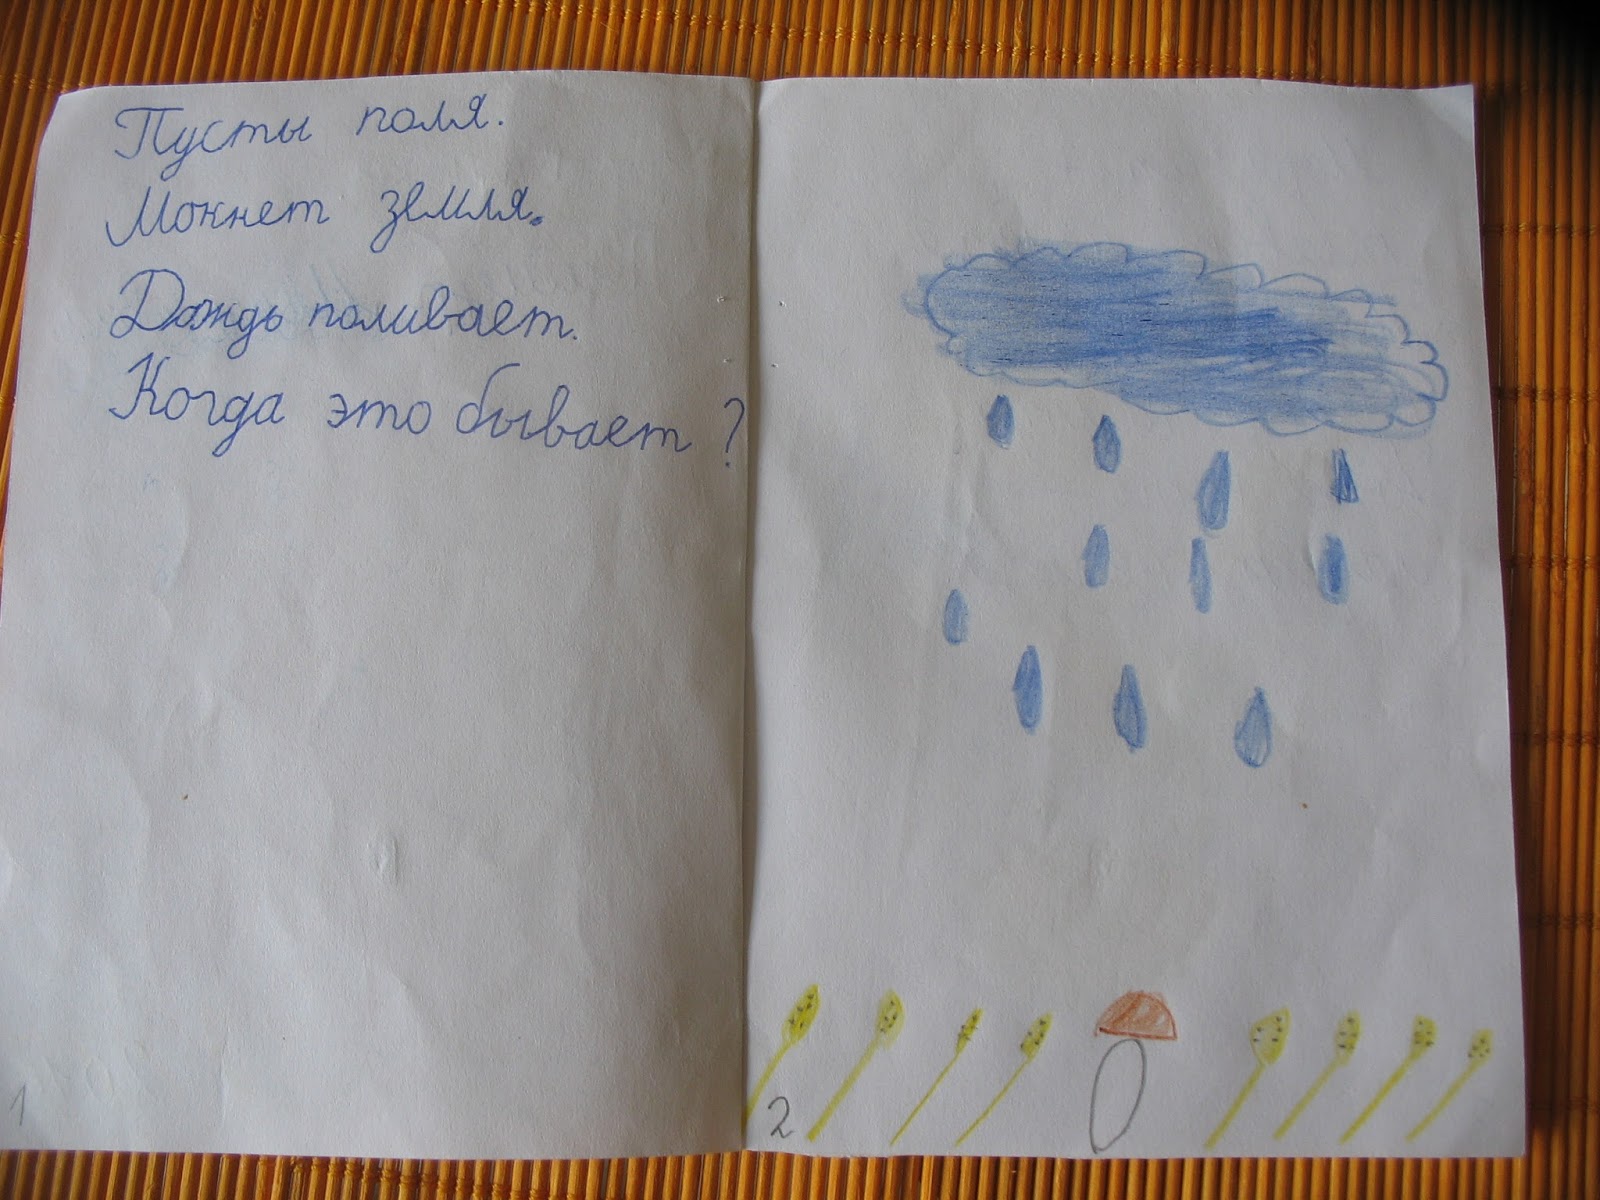 Пусты поля.
Мокнет земля.
Дождь поливает.
Когда это бывает?
1
2